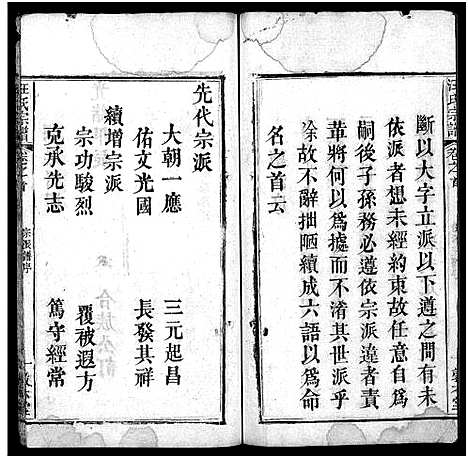 汪氏宗譜
斷以大字立派以下遵之間有未
依派者想未經約束故任意自作
嗣後子孫務必遵依宗派違者責
革將何以爲據而不淆其世派乎
徐故不辭拙陋續成六語以爲命
名之首云
先代宗派
大朝一應 三元起昌
佑文光國 長發其祥
續增宗派
宗功駿烈 覆被遐方
克承先志 篤守經常
汪氏宗譜
宗派譜序
一